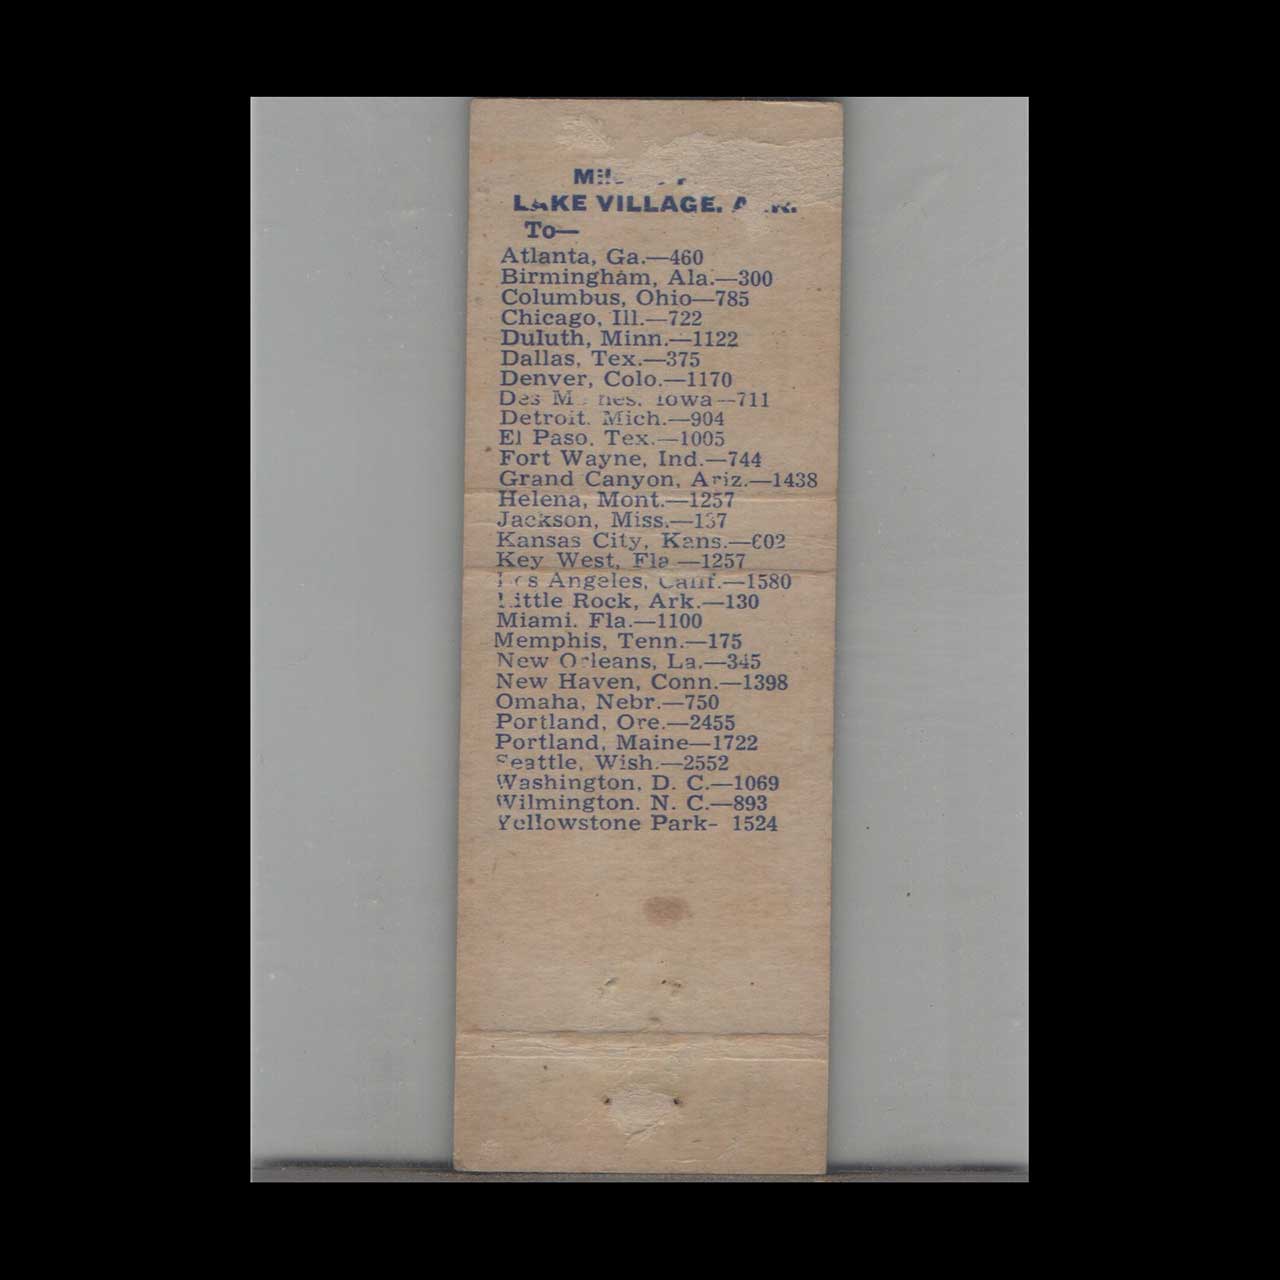 LAKE VILLAGE, ARK.
To—
Atlanta, Ga.—460
Birmingham, Ala.—300
Columbus, Ohio—785
Chicago, Ill.—722
Duluth, Minn.—1122
Dallas, Tex.—375
Denver, Colo.—1170
Des Moines, Iowa—711
Detroit, Mich.—904
El Paso, Tex.—1005
Fort Wayne, Ind.—744
Grand Canyon, Ariz.—1438
Helena, Mont.—1257
Jackson, Miss.—137
Kansas City, Kans.—602
Key West, Fla.—1257
Los Angeles, Calif.—1580
Little Rock, Ark.—130
Miami, Fla.—1100
Memphis, Tenn.—175
New Orleans, La.—345
New Haven, Conn.—1398
Omaha, Nebr.—750
Portland, Ore.—2455
Portland, Maine—1722
Seattle, Wish.—2552
Washington, D. C.—1069
Wilmington, N. C.—893
Yellowstone Park— 1524